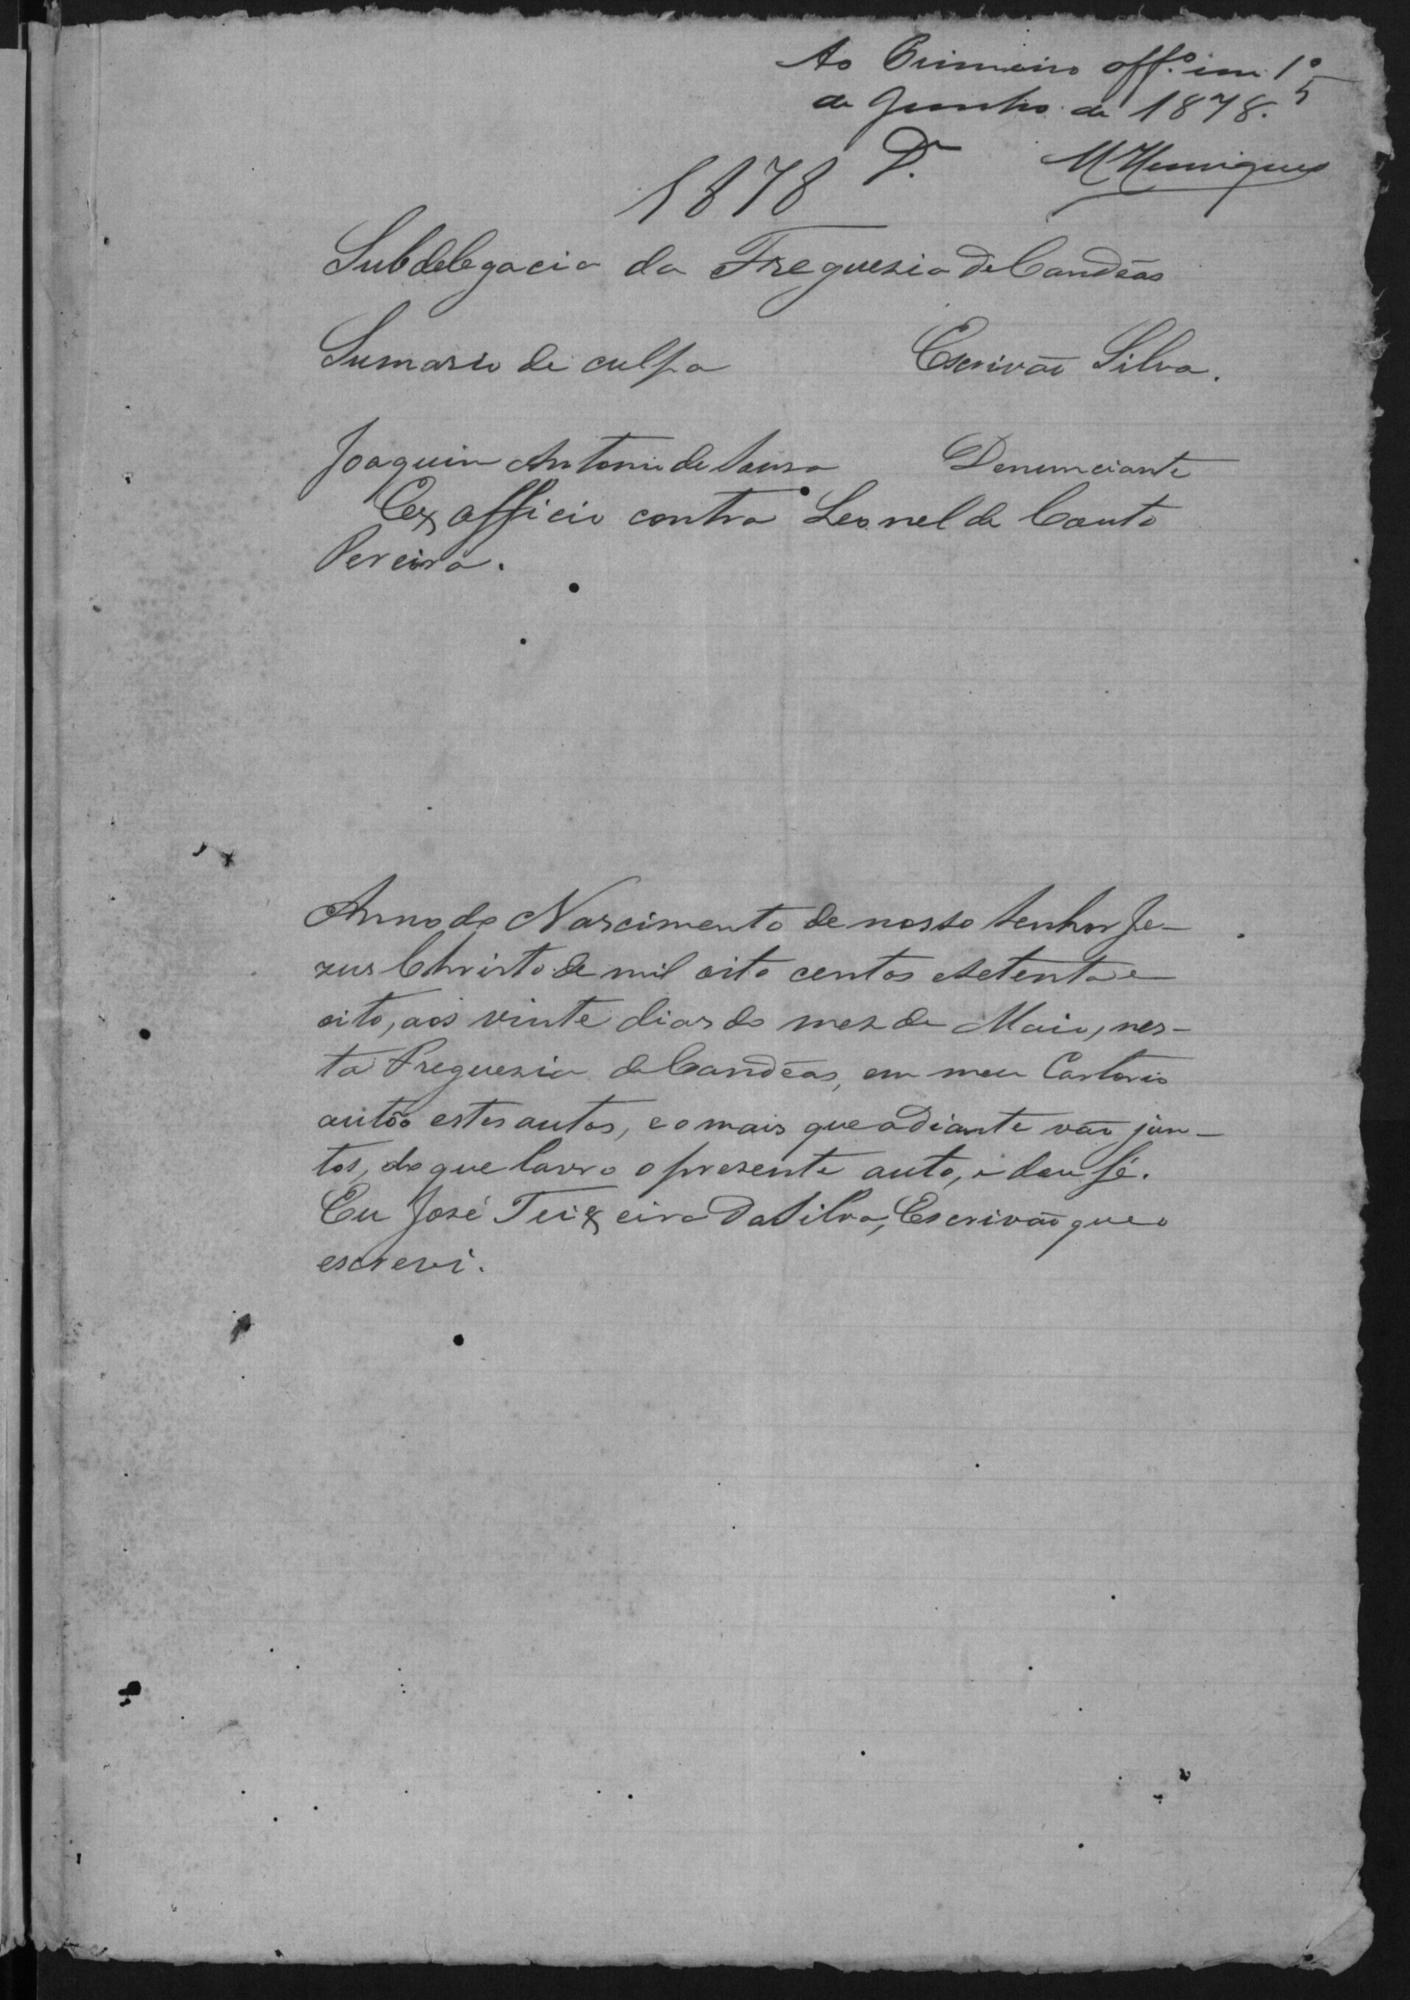 Ao Primeiro offº. em 1º
de Junho de 1878. 5
D. MHenriques
1878
Subdelegacia da Freguesia de Candêas
Sumario de culpa Escrivão Silva.
Joaquim Antonio de Sousa Denunciante
Ex officio contra Leonel de Couto
Pereira.
Anno do Nascimento de nosso Senhor Je-
zus Christo de mil oito centos e setenta e
oito, aos vinte dias do mez de Maio, nes-
ta Freguezia de Candêas, em meu Cartorio
autôo estes autos, e o mais que adiante vão jun-
tos, do que lavro o presente auto, e dou fé.
Eu José Teixeira da Silva, Escrivão que o
escrevi.